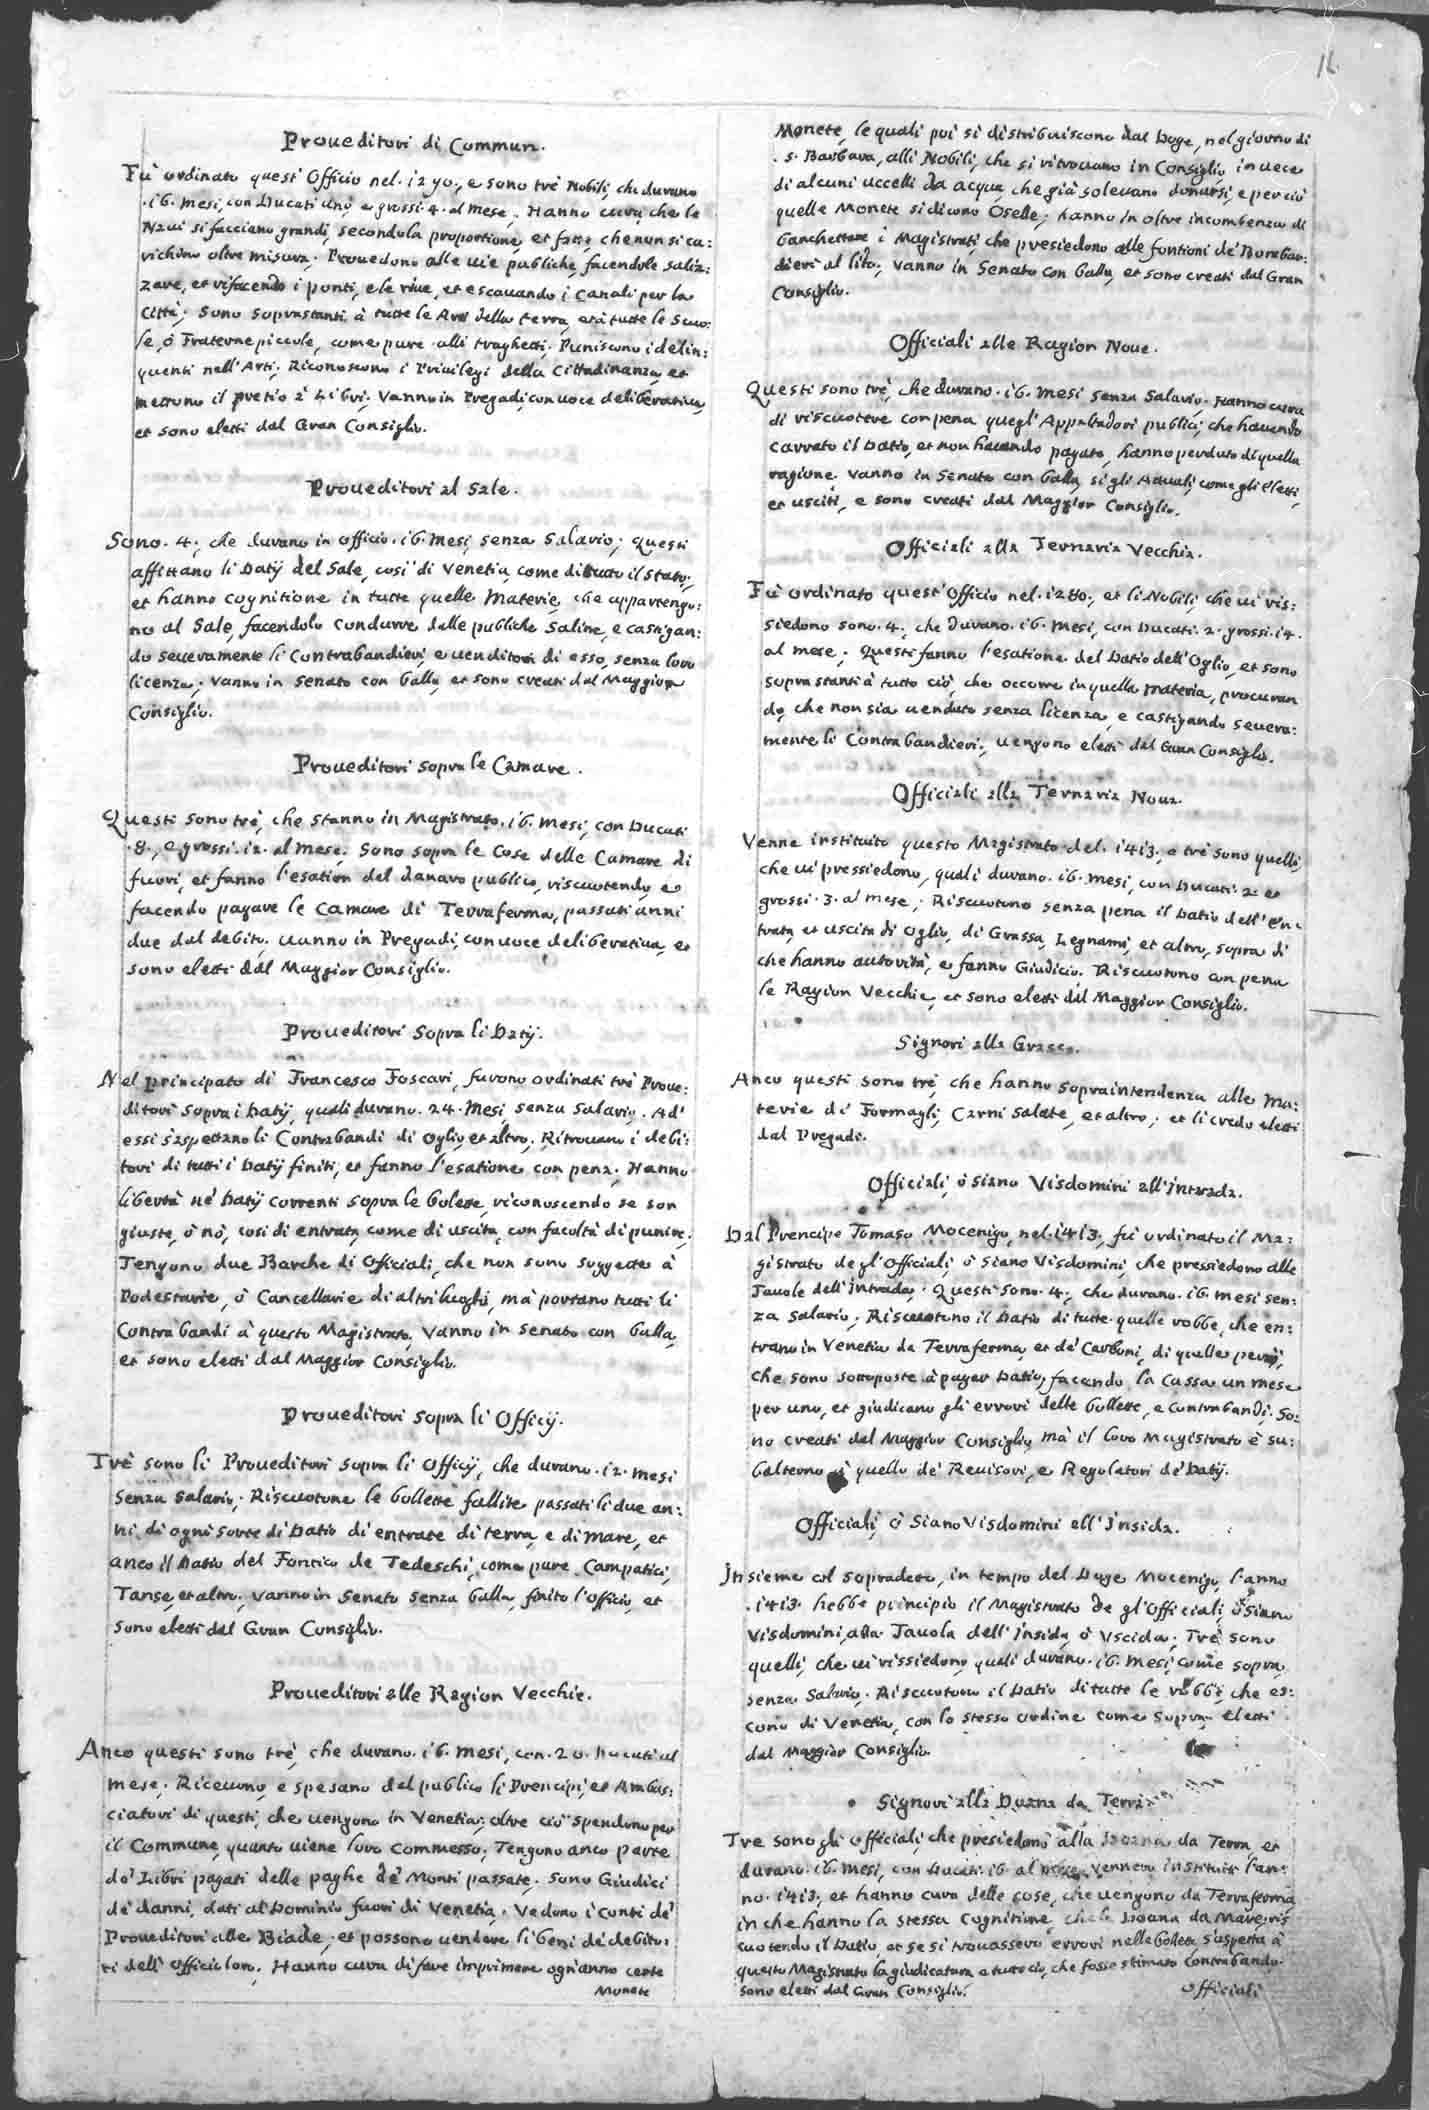 16.
Proueditori di Commun.
Fù ordinato quest'Officio nel .1290., e sono trè Nobili, che durano
.16. mesi, con Ducati uno, e grossi .4. al mese. Hanno cura, che le
Naui si facciano grandi, secondo la proportione, et che non si ca:
richino oltre misura. Prouedono alle uie publiche facendole saliz:
zare, et rifacendo i ponti, e le riue, et escauando i Canali per la
Città; Sono soprastanti à tutte le Arti della terra, et à tutte le Scuo:
le, ò Fraterne piccole, come pure alli traghetti; Puniscono i delin:
quenti nell'Arti; Riconoscono i Priuilegi della Cittadinanza, et
mettono il pretio à Libri; Vanno in Pregadi, con uoce deliberatiua,
et sono eletti dal Gran Consiglio.
Proueditori al Sale.
Sono .4., che durano in officio .16. mesi, senza salario; questi
affittano li Datÿ del Sale, cosi di Venetia, come di tutto il Stato,
et hanno cognitione in tutte quelle Materie, che appartengo:
no al Sale, facendolo condurre dalle publiche Saline, e castigan:
do seueramente li Contrabandieri, e uenditori di esso, senza loro
licenza; Vanno in Senato con balla, et sono creati dal Maggior
Consiglio.
Proueditori sopra le Camare.
Questi sono trè, che stanno in Magistrato .16. mesi, con Ducati
.8., e grossi .12. al mese; Sono sopra le Cose delle Camare di
fuori, et fanno l'esation del danaro publico, riscuotendo, e
facendo pagare le Camare di Terraferma, passati anni
due dal debito. Uanno in Pregadi, con uoce deliberatiua, et
sono eletti dal Maggior Consiglio.
Proueditori Sopra li Datÿ.
Nel principato di Francesco Foscari, furono ordinati trè Proue:
ditori sopra i Datÿ, quali durano .24. mesi, senza salario. Ad'
essi s'aspettano li Contrabandi di Oglio, et altro; Ritrouano i debi:
tori di tutti i Datÿ finiti, et fanno l'esatione con pena; Hanno
libertà ne' Datÿ correnti sopra le bolette, riconoscendo se son
giuste, ò nò, cosi di entrata, come di uscita, con facoltà di punire;
Tengono due Barche di Officiali, che non sono suggette à
Podestarie, ò Cancellarie di altri luoghi, mà portano tutti li
Contrabandi à questo Magistrato, Vanno in Senato con balla,
et sono eletti dal Maggior Consiglio.
Proueditori sopra li Officÿ.
Trè sono li Proueditori sopra li Officÿ, che durano .12. mesi
senza salario; Riscuotono le bollette fallite passati li due an:
ni, di ogni sorte di Datio di entrate di terra, e di mare, et
anco il Datio del Fontico de Tedeschi, come pure Campatici,
Tanse, et altro. Vanno in Senato senza balla, finito l'officio, et
sono eletti dal Gran Consiglio.
Proueditori alle Ragion Vecchie.
Anco questi sono trè, che durano .16. mesi, con .20. Ducati al
mese; Riceuono, e spesano del publico li Prencipi, et Ambas:
ciatori di questi, che uengono in Venetia; oltre ciò spendono per
il Commune, quanto uiene loro commesso; Tengono anco parte
de' Libri pagati delle paghe de' Monti passate; Sono Giudici
de' danni, dati al Dominio fuori di Venetia. Vedono i conti de'
Proueditori alle Biade, et possono uendere li beni de' debito:
ri dell'officio loro. Hanno cura di fare imprimere ogn'anno certe
Monete
Monete, le quali poi si distribuiscono dal Doge, nel giorno di
.S. Barbara, alli Nobili, che si ritrouano in Consiglio, in uece
di alcuni uccelli da acqua, che già soleuano donarsi, e per ciò
quelle Monete si dicono Oselle; hanno in oltre incombenza di
banchettare i Magistrati, che presiedono alle fontioni de' Bombar:
dieri al lito. Vanno in Senato con balla, et sono creati dal Gran
Consiglio.
Officiali alle Ragion Noue.
Questi sono trè, che durano .16. mesi senza salario. Hanno cura
di riscuotere con pena quegl'Appaltadori publici, che hauendo
cauato il Datio, et non hauendo pagato, hanno perduto di quella
ragione. Vanno in Senato con balla, si gli Attuali, come gli eletti,
et usciti, e sono creati dal Maggior Consiglio.
Officiali alla Ternaria Vecchia.
Fù ordinato quest'Officio nel .1280., et li Nobili, che ui ris:
siedono sono .4., che durano .16. mesi, con Ducati .2. grossi .14.
al mese; Questi fanno l'esatione del Datio dell'Oglio, et sono
soprastanti à tutto ciò, che occorre in quella materia, procuran
do, che non sia uenduto senza licenza, e castigando seuera:
mente li Contrabandieri; uengono eletti dal Gran Consiglio.
Officiali alla Ternaria Noua.
Venne instituito questo Magistrato del .1413., e trè sono quelli,
che ui pressiedono, quali durano .16. mesi, con Ducati .2. et
grossi .3. al mese; Riscuotono senza pena il Datio dell'En:
trata, et uscita di Oglio, di Grassa, Legnami, et altro, sopra di
che hanno autorità, e fanno Giudicio. Riscuotono con pena
le Ragion Vecchie, et sono eletti dal Maggior Consiglio.
Signori alla Grassa.
Anco questi sono trè, che hanno sopraintendenza alle ma:
terie di Formagli, Carni salate, et altro; et li credo eletti
dal Pregadi.
Officiali, ò siano Visdomini all'Intrada.
Dal Prencipe Tomaso Mocenigo, nel .1413., fù ordinato il Ma:
gistrato degl'Officiali, ò siano Visdomini, che pressiedono alle
Tauole dell'Intrada. Questi sono .4., che durano .16. mesi sen:
za salario; Riscuotono il Datio di tutte quelle robbe, che en:
trano in Venetia da Terraferma, et de' Carboni, di quelle però,
che sono sottoposte à pagar Datio, facendo la Cassa un mese
per uno, et giudicano gli errori delle bollette, e Contrabandi. So:
no creati dal Maggior Consiglio, mà il loro Magistrato è su:
balterno à quello de' Reuisori, e Regolatori de' Datÿ.
Officiali, ò Siano Visdomini all'Insida.
Insieme col sopradetto, in tempo del Doge Mocenigo, l'anno
.1413. hebbe principio il Magistrato de gl'Officiali, ò siano
Visdomini, alla Tauola dell'Insida, ò Uscida; Trè sono
quelli, che ui rissiedono, quali durano .16. mesi, come sopra,
senza salario. Riscuotono il Datio di tutte le robbe, che es:
cono di Venetia, con lo stesso ordine come sopra, eletti
dal Maggior Consiglio.
Signori alla Duana da Terra.
Tre sono gli Officiali, che presiedono alla Doana da Terra, et
durano .16. mesi, con Ducati .16. al mese, vennero instituiti l'an:
no .1413., et hanno cura delle cose, che uengono da Terraferma,
in che hanno la stessa Cognitione, che la Doana da Mare, ris
cuotendo il Datio, et se si trouassero errori nelle bollette s'aspetta à
questo Magistrato la giudicatura, e tutto ciò, che fosse stimato Contrabando.
sono eletti dal Gran Consiglio.
Officiali